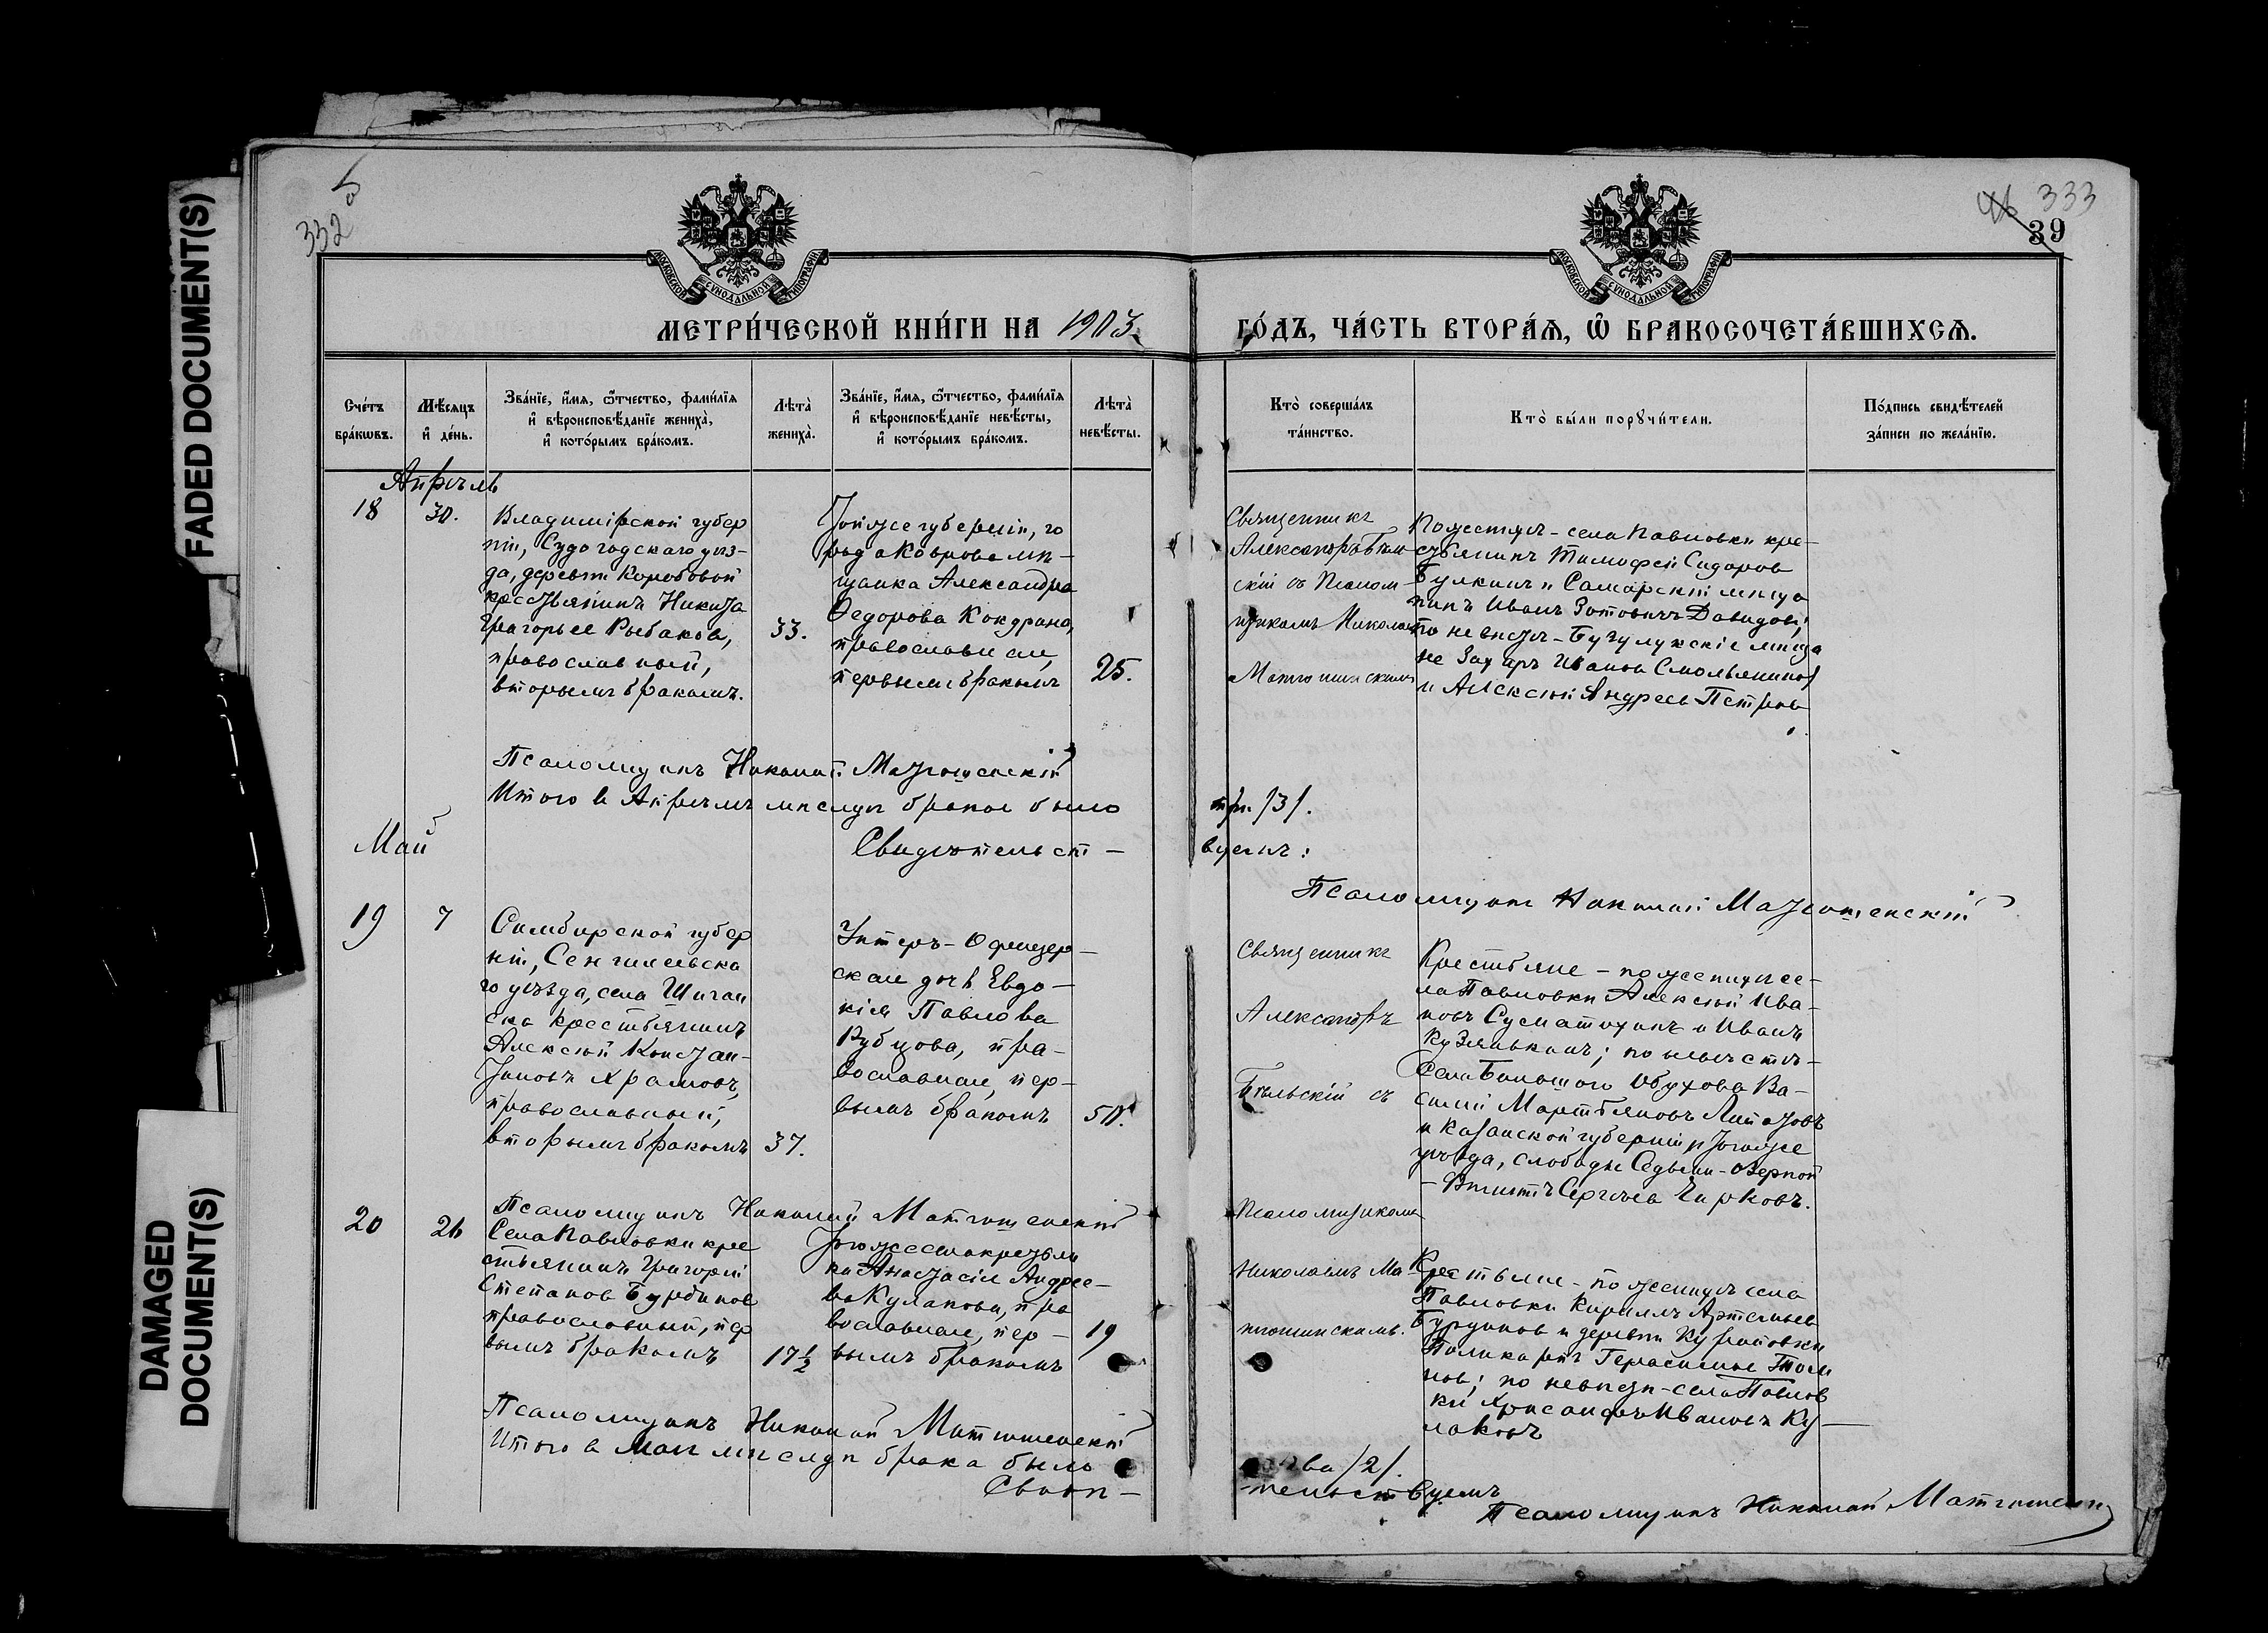 FADED DOCUMENT(S)
DAMAGED
DOCUMENT(S)
332
5
333
39
МОСКОВСКОЙ СУНОДАЛЬНОЙ ТИПОГРАФІИ
МОСКОВСКОЙ СУНОДАЛЬНОЙ ТИПОГРАФІИ
МЕТРИ́ЧЕСКОЙ КНИ́ГИ НА 1903
ГО́ДЪ, ЧА́СТЬ ВТОРА́Ѧ, Ѡ҆ БРАКОСОЧЕТА́ВШИХСѦ.
Сче́тъ
бра́кѡвъ.
Мѣ́сѧцъ
и҆ де́нь.
Зва́нїе, и҆́мѧ, ѻ҆́тчество, фами́лїѧ
и҆ вѣроисповѣ́данїе жениха̀,
и҆ кото́рымъ бра́комъ.
Лѣта̀
жениха̀.
Зва́нїе, и҆́мѧ, ѻ҆́тчество, фами́лїѧ
и҆ вѣроисповѣ́данїе невѣ́сты,
и҆ кото́рымъ бра́комъ.
Лѣта̀
невѣ́сты.
Кто̀ соверша́лъ
та́инство.
Кто̀ бы́ли порꙋчи́тели.
По́дпись свидѣ́телей
за́писи по жела́нїю.
Апрѣль
18
30.
Владимірской губер
ніи, Судогодскаго уѣз-
да, деревни Коробовой
крестьянинъ Никита
Григорьев Рыбаковъ,
православный,
вторымъ бракомъ.
33.
Тойже губерніи, го
рода Коврова мѣ-
щанка Александра
Ѳедорова
православная,
первымъ бракомъ
25.
Священникъ
Александръ Бѣль
скій съ Псалом-
щикомъ Николаемъ
Матюшинскимъ
По женихѣ - села Павловки кре-
стьянинъ Тимофей Сидоров
Булкинъ и Самарскій мѣща
нинъ Иванъ Зотовичъ Давыдовъ;
по невѣстѣ - Бугульмскіе мѣща
не Захаръ Иванов Смольянинов
и Алексѣй Андреев Петров
Псаломщикъ Николай Матюшенскій
Итого в Апрѣлѣ мѣсяцѣ браков было
три /3/.
Май
Свидѣтельст-
вуемъ:
Псаломщикъ Николай Матюшенскій
19
7
Симбирской губер
ніи, Сенгилеевска
го уѣзда, села Шиган
ска крестьянинъ
Алексѣй Констан-
тиновъ Храмовъ,
православный,
вторымъ бракомъ
37.
Унтеръ-Офицер-
ская дочь Евдо-
кія Павлова
Рубцова, пра-
вославная, пер-
вымъ бракомъ
50.
Священникъ
Александръ
Бѣльскій съ
Псаломщикомъ
Николаемъ Ма-
тюшинскимъ.
Крестьяне - по женихѣ се-
ла Павловки Алексѣй Ива-
новъ Суматохинъ и Иванъ
Кузянькинъ; по невѣстѣ-
села Большого Обухова Ва-
силій Мартьяновъ Липатовъ
и Казанской губерніи и тогоже
уѣзда, слободы Седьми-озерной
- Сергѣевъ Чирковъ.
Псаломщикъ Николай Матюшенскій
20
26
Села Павловки кре
стьянинъ Григорій
Степанов Бурдинов
православный, пер
вымъ бракомъ
17½
Тогоже села крестьян
ка Анастасія Андрее-
ва Кулакова, пра
вославная, пер-
вымъ бракомъ
19
Крестьяне - по женихѣ села
Павловки Кириллъ Артемьев
Бурдинов и деревни
Поликарпъ Герасимов
нов; по невѣстѣ - села Павлов
ки Хрисанфъ Ивановъ Ку-
лаковъ
Псаломщикъ Николай Матюшенскій
Итого в Маѣ мѣсяцѣ брака было
два /2/.
Свидѣ-
тельствуемъ
Псаломщикъ Николай Матюшенскій